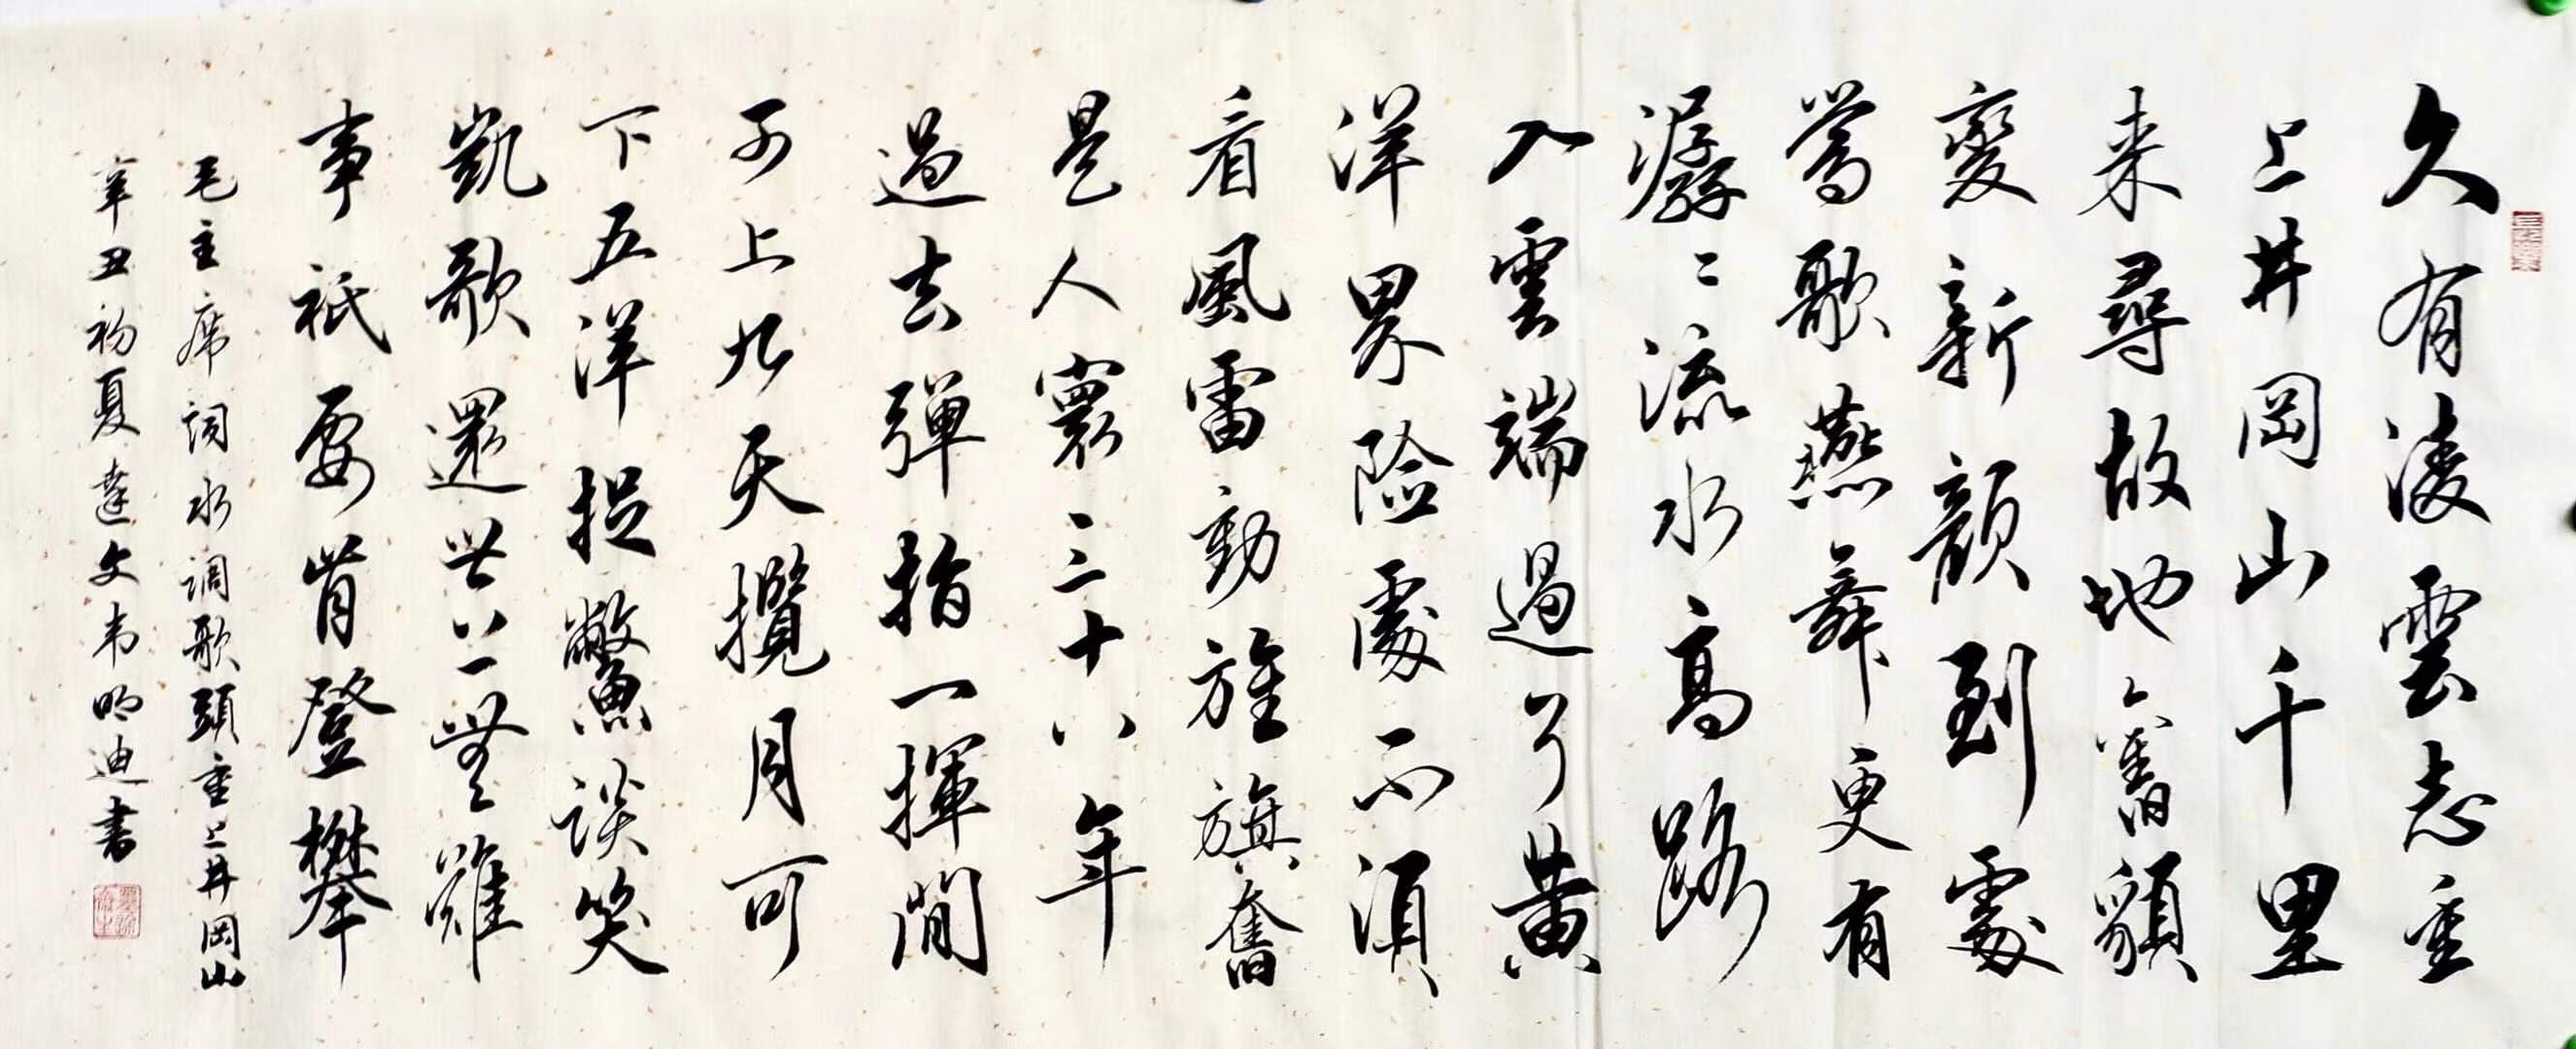 久有凌雲志重
上井岡山千里
来尋故地舊䫉
變新顏到處
鶯歌燕舞更有
潺〻流水高路
入雲端過了黃
洋界险處不須
看風雷動旌旗奮
是人寰三十八年
過去彈指一揮間
可上九天攬月可
下五洋捉鱉談笑
凱歌還世上無難
事衹要肯登攀
毛主席词水调歌頭重上井岡山
辛丑初夏達文韦明迪書